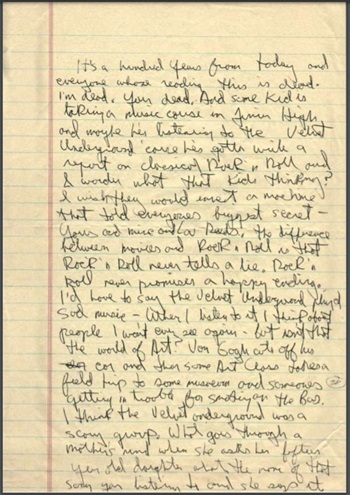 It's a hundred years from today and
everyone whose reading this is dead.
I'm dead. You're dead. And some kid is
taking a music course in Junior High,
and maybe he's listening to the Velvet
Underground 'cause he's gotta write a
report on classical Rock 'n Roll and
I wonder what that kid's thinking?
I wish they would invent a machine
that told everyone's biggest secret -
Yours and mine and Lou Reed's. The difference
between movies and Rock 'n Roll is that
Rock 'n Roll never tells a lie. Rock 'n
Roll never promises a happy ending.
I'd love to say the Velvet Underground play'd
sad music - When I listen to it I think about
people I wont ever see again - but isn't that
the world of Art? Van Gogh cuts off his
ear and then some Art Class takes a
field trip to some museum and someones
getting in trouble for smoking on the Bus.
I think the Velvet Underground was a
scary group. What goes through a
mother's mind when she asks her fifteen
year old daughter what the name of that
song you listening to and she says it